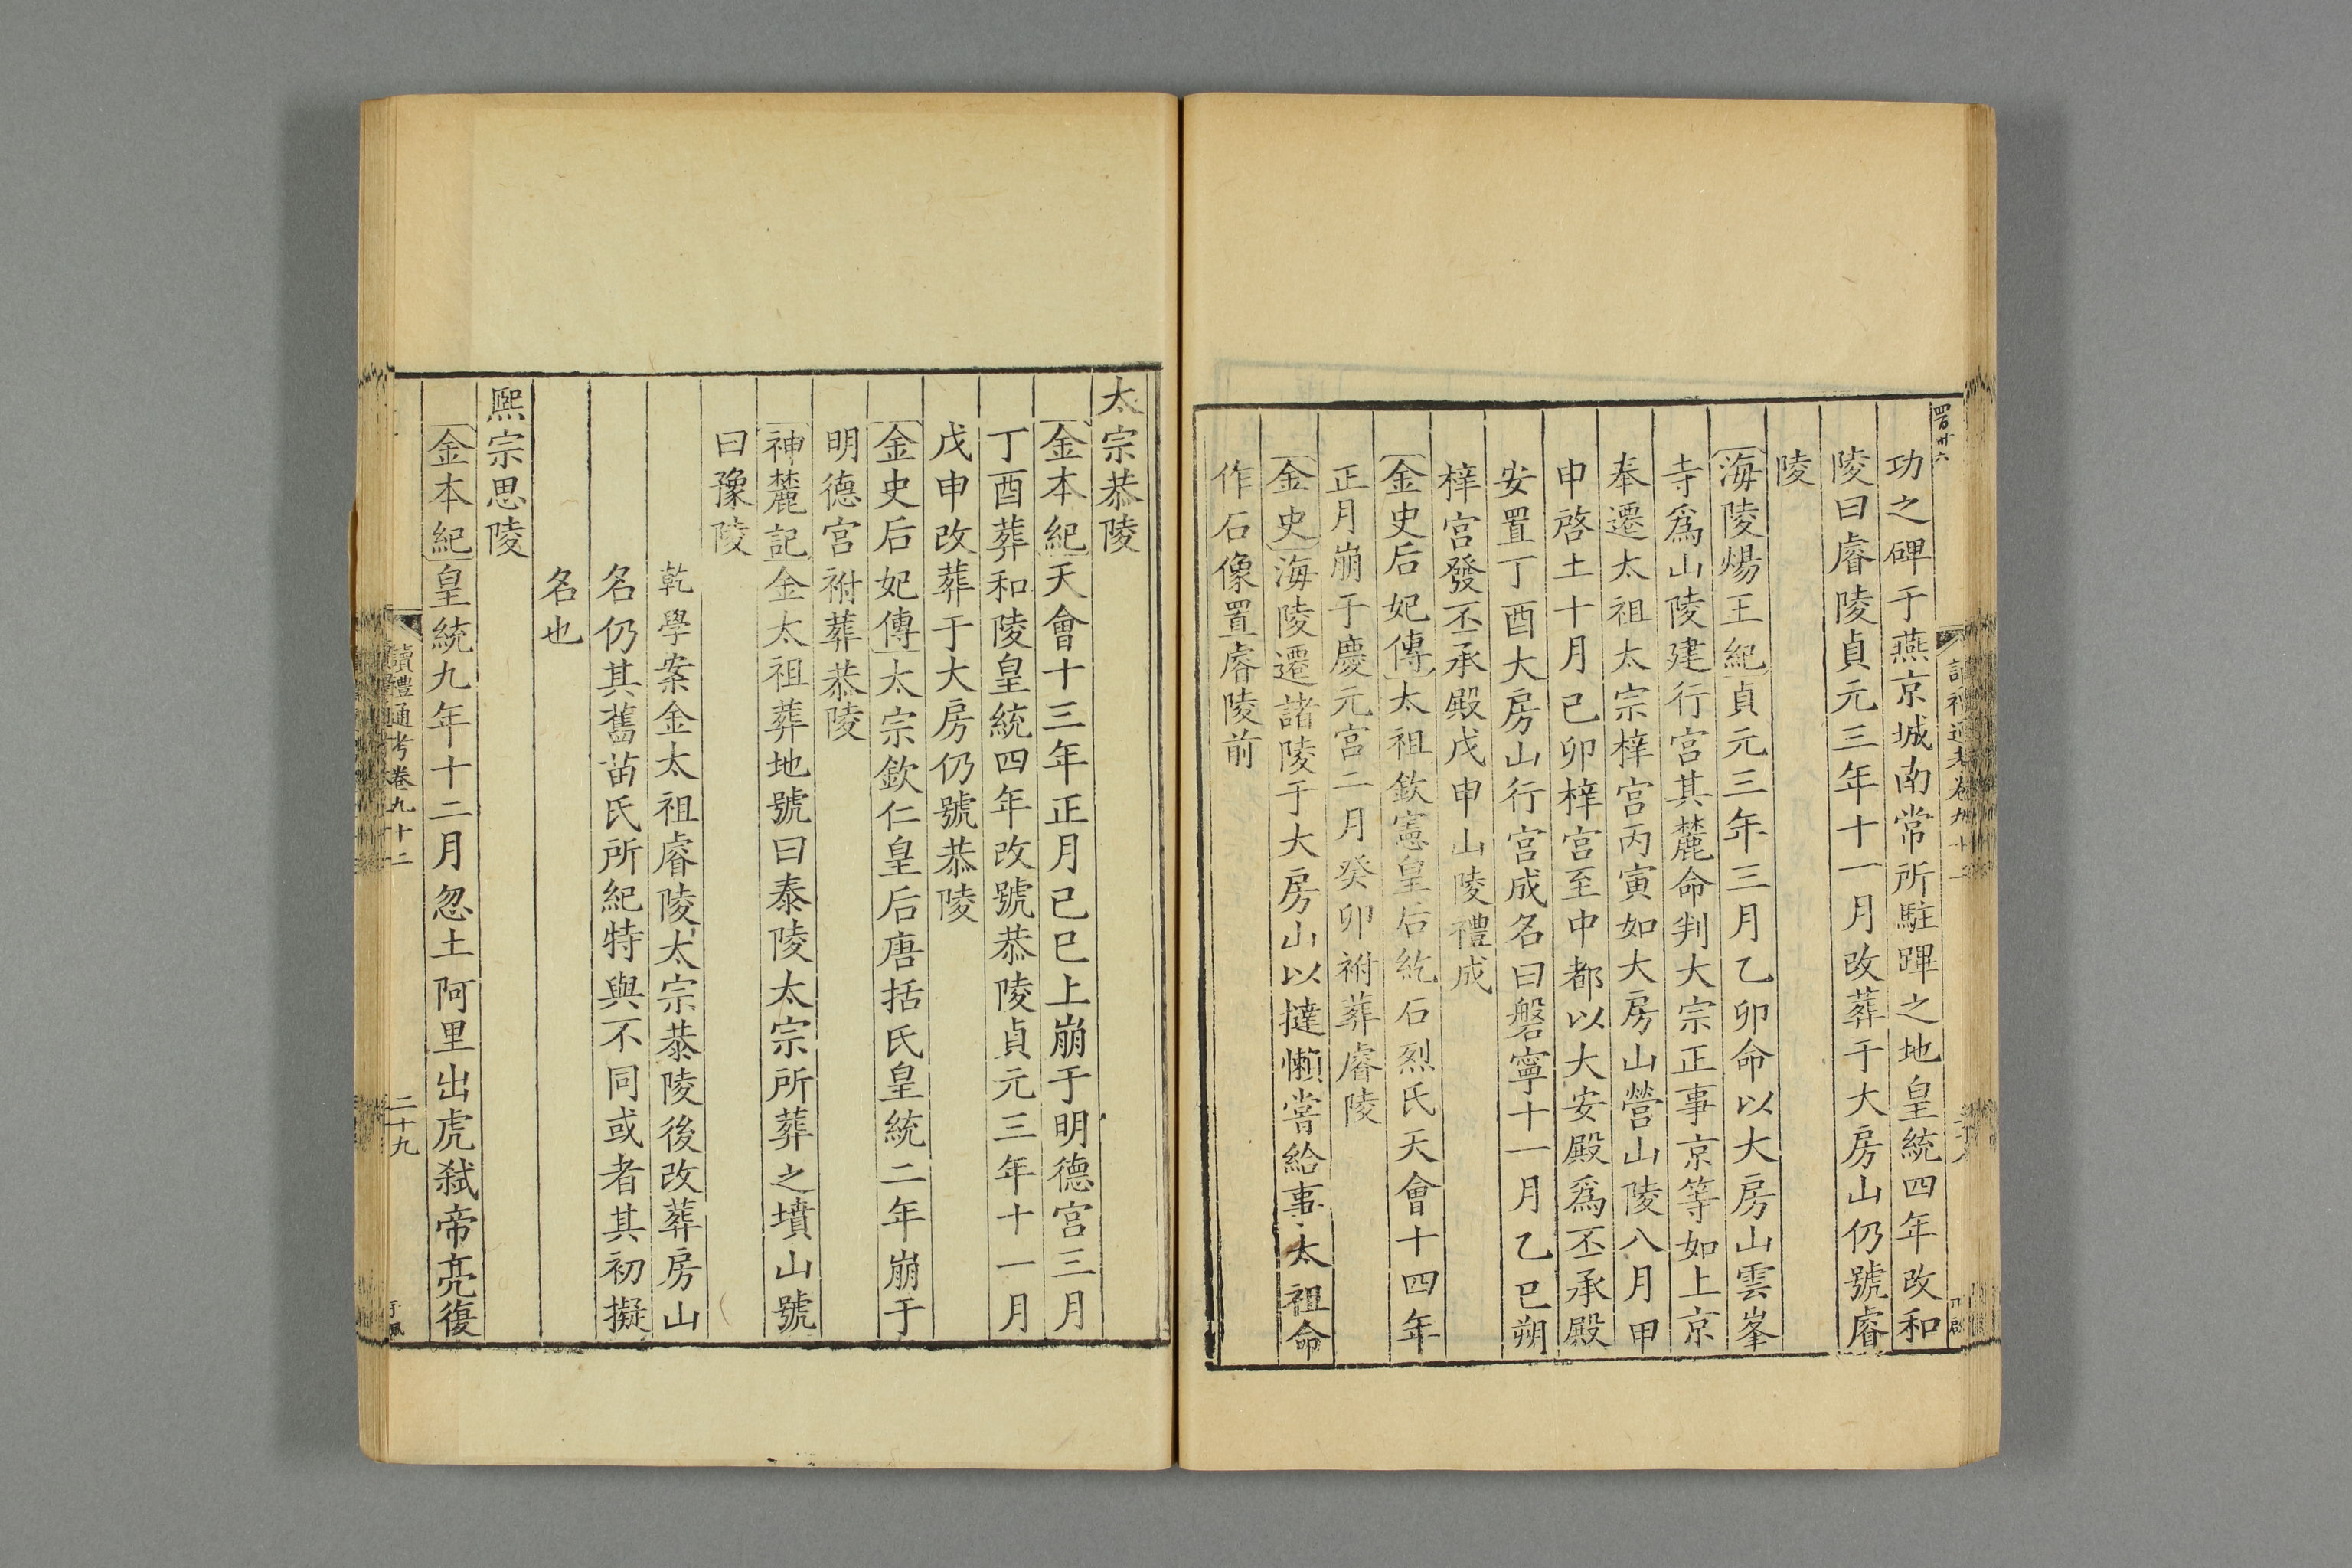 功之碑于燕京城南常所駐蹕之地皇統四年改和
陵曰睿陵貞元三年十一月改葬于大房山仍號睿
陵
海陵煬王紀貞元三年三月乙卯命以大房山雲峯
寺爲山陵建行宮其麓命判大宗正事京等如上京
奉遷太祖太宗梓宮丙寅如大房山營山陵八月甲
申啓土十月已卯梓宮至中都以大安殿爲丕承殿
安置丁酉大房山行宮成名曰磐寧十一月乙巳朔
梓宮發丕承殿戊申山陵禮成
金史后妃傳太祖欽憲皇后紇石烈氏天會十四年
正月崩于慶元宮二月癸卯祔葬睿陵
金史海陵遷諸陵于大房山以撻懶嘗給事太祖命
作石像置睿陵前
太宗恭陵
金本紀天會十三年正月己巳上崩于明德宮三月
丁酉葬和陵皇統四年改號恭陵貞元三年十一月
戊申改葬于大房仍號恭陵
金史后妃傳太宗欽仁皇后唐括氏皇統二年崩于
明德宮祔葬恭陵
神麓記金太祖葬地號曰泰陵太宗所葬之墳山號
曰豫陵
乾學案金太祖睿陵太宗恭陵後改葬房山
名仍其舊苗氏所紀特與不同或者其初擬
名也
熙宗思陵
金本紀皇統九年十二月忽土阿里出虎弒帝亮復
讀禮通考卷九十二
二十九